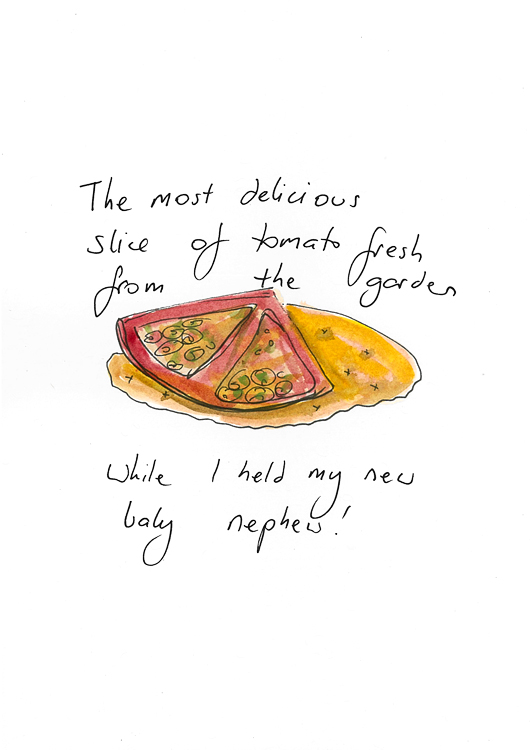 The most delicious
slice of tomato fresh
from the garden
while I held my new
baby nephew!